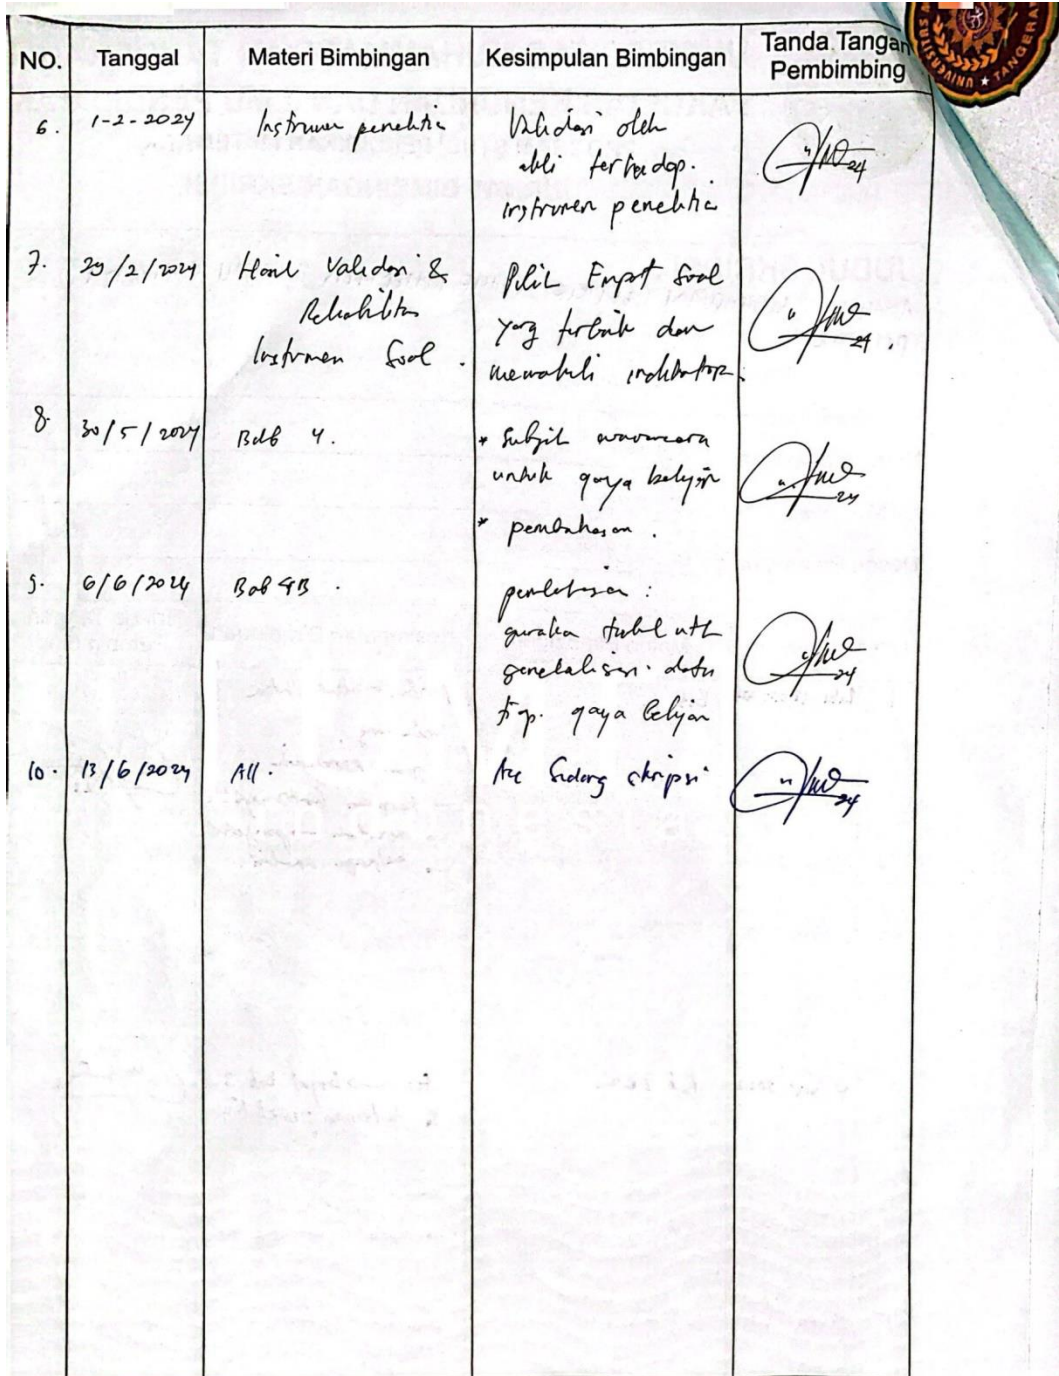 NO.
Tanggal
Materi Bimbingan
Kesimpulan Bimbingan
Tanda Tangan
Pembimbing
TANGERA
6.
1-2-2024
Instrumen penelitia
Validasi oleh
ahli terhadap.
instrumen penelitia
7.
29/2/2024
Hasil Validasi &
Reliabilitas
Instrumen Soal.
Pilih Empat Soal
yang terbaik dan
mewakili indikator.
8.
30/5/2024
Bab 4.
* Subjek wawancara
untuk gaya belajar
* pembahasan.
9.
6/6/2024
Bab 4B.
pembahasan:
gunakan tabel utk
generalisasi data
tiap. gaya belajar
10.
13/6/2024
All.
Acc Sidang skripsi